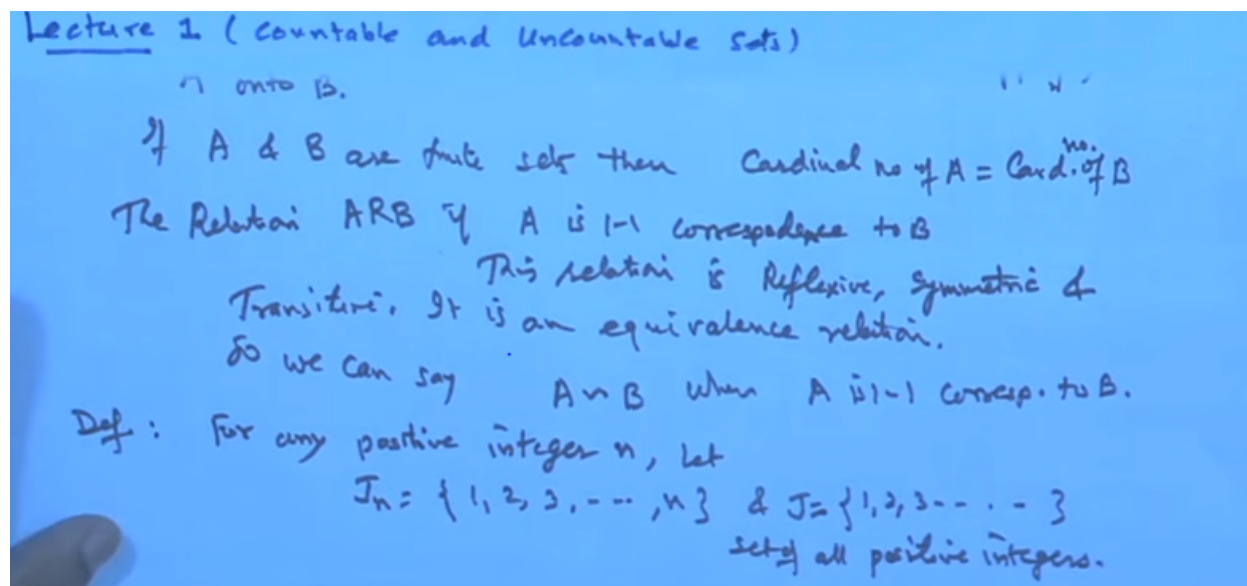 Lecture 1 (Countable and Uncountable Sets)
onto B.
If A & B are finite sets then Cardinal no of A = Card. no. of B
The Relation ARB if A is 1-1 correspodence to B
This relation is Reflexive, Symmetric &
Transitive. It is an equivalence relation.
So we can say A ~ B when A is 1-1 corresp. to B.
Def: For any positive integer n, let
Jn = {1, 2, 3, ---, n} & J = {1, 2, 3 -- . . - }
set of all positive integers.